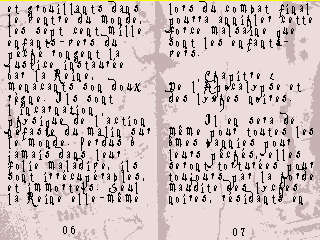 et grouillants dans
le centre du monde,
les sept cent mille
enfants-rets du
pacte rongent la
justice instaurée
par la Reine,
menaçants son doux
règne. Ils sont
l'incarnation
physique de l'action
néfaste du malin sur
le monde. Perdus à
jamais dans leur
folle maladie, ils
sont irrécupérables,
et immortels. Seul
la Reine elle-même
06
lors du combat final
pourra annihiler cette
force malsaine que
sont les enfants-
rets.
Chapitre 2
De l'Apocalypse et
des lyxées noires.
Il en sera de
même pour toutes les
âmes damnées pour
leurs péchés, elles
seront torturées pour
toujours par la horde
maudite des lyxées
noires, résidants en
07